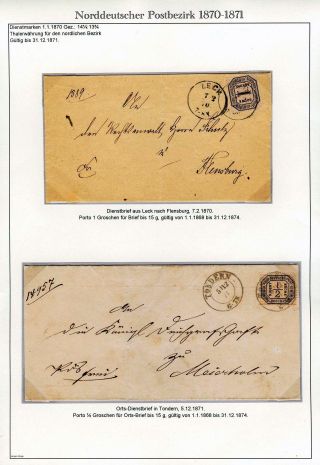 Norddeutscher Postbezirk 1870-1871
Dienstmarken 1.1.1870 Gez.: 14¼:13¾
Thalerwährung für den nordlichen Bezirk
Gültig bis 31.12.1871.
1889
An
LECK
7 2
70
1
den Rechtsanwalt, Herrn
zu
Flensburg
Dienstbrief aus Leck nach Flensburg, 7.2.1870.
Porto 1 Groschen für Brief bis 15 g, gültig von 1.1.1868 bis 31.12.1874.
TONDERN
5 12
1/2
An
die Königl
zu
frei
Meierholm
Orts-Dienstbrief in Tondern, 5.12.1871.
Porto ½ Groschen für Orts-Brief bis 15 g, gültig von 1.1.1868 bis 31.12.1874.